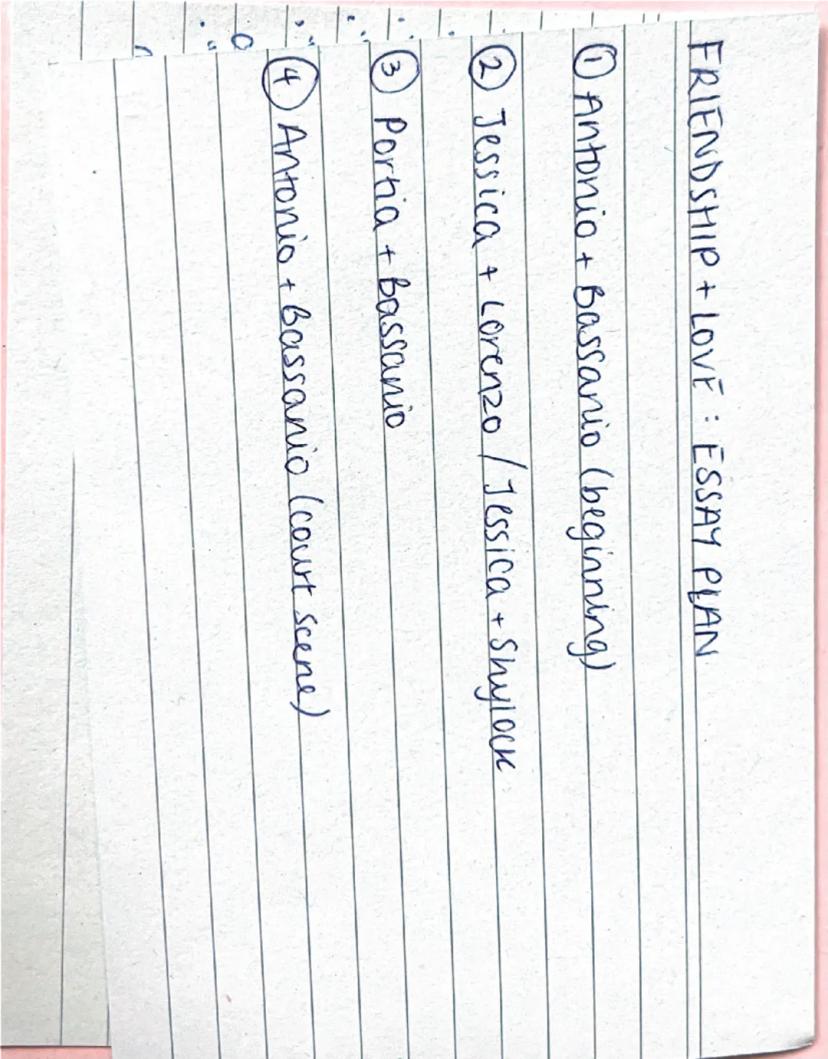 FRIENDSHIP + LOVE : ESSAY PLAN
① Antonio + Bassanio (beginning)
② Jessica + Lorenzo / Jessica + Shylock
③ Portia + Bassanio
④ Antonio + Bassanio (court scene)